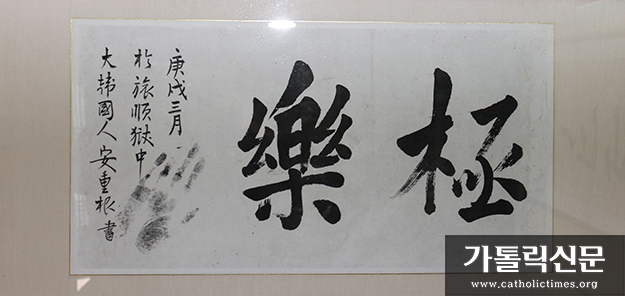 極樂
庚戌三月
於旅順獄中
大韓國人 安重根 書
가톨릭신문
www.catholictimes.org